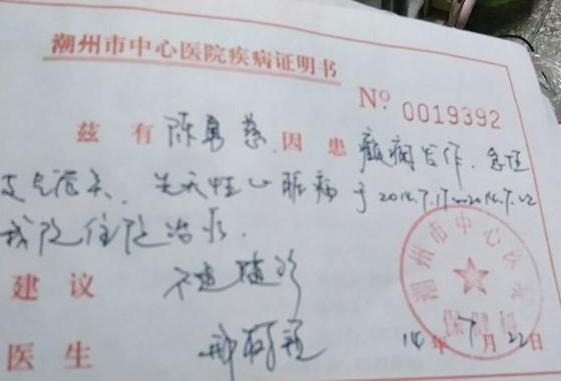 潮州市中心医院疾病证明书
Nº 0019392
兹有 陈勇慈 因患 癫痫发作、急性
支气管炎、先天性心脏病于2014.7.17—2014.7.22
我院住院治疗.
建议
医生
14年7月22日
潮州市中心医院